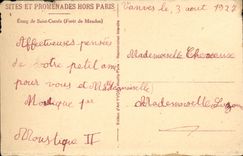 SITES ET PROMENADES HORS PARIS
Étang de Saint-Cucufa (Forêt de Meudon)
Vanves le 3 août 1927
Affectueuses pensées
de votre petit ami
pour vous et Mademoiselle
Moustique II
Mademoiselle
Mademoiselle